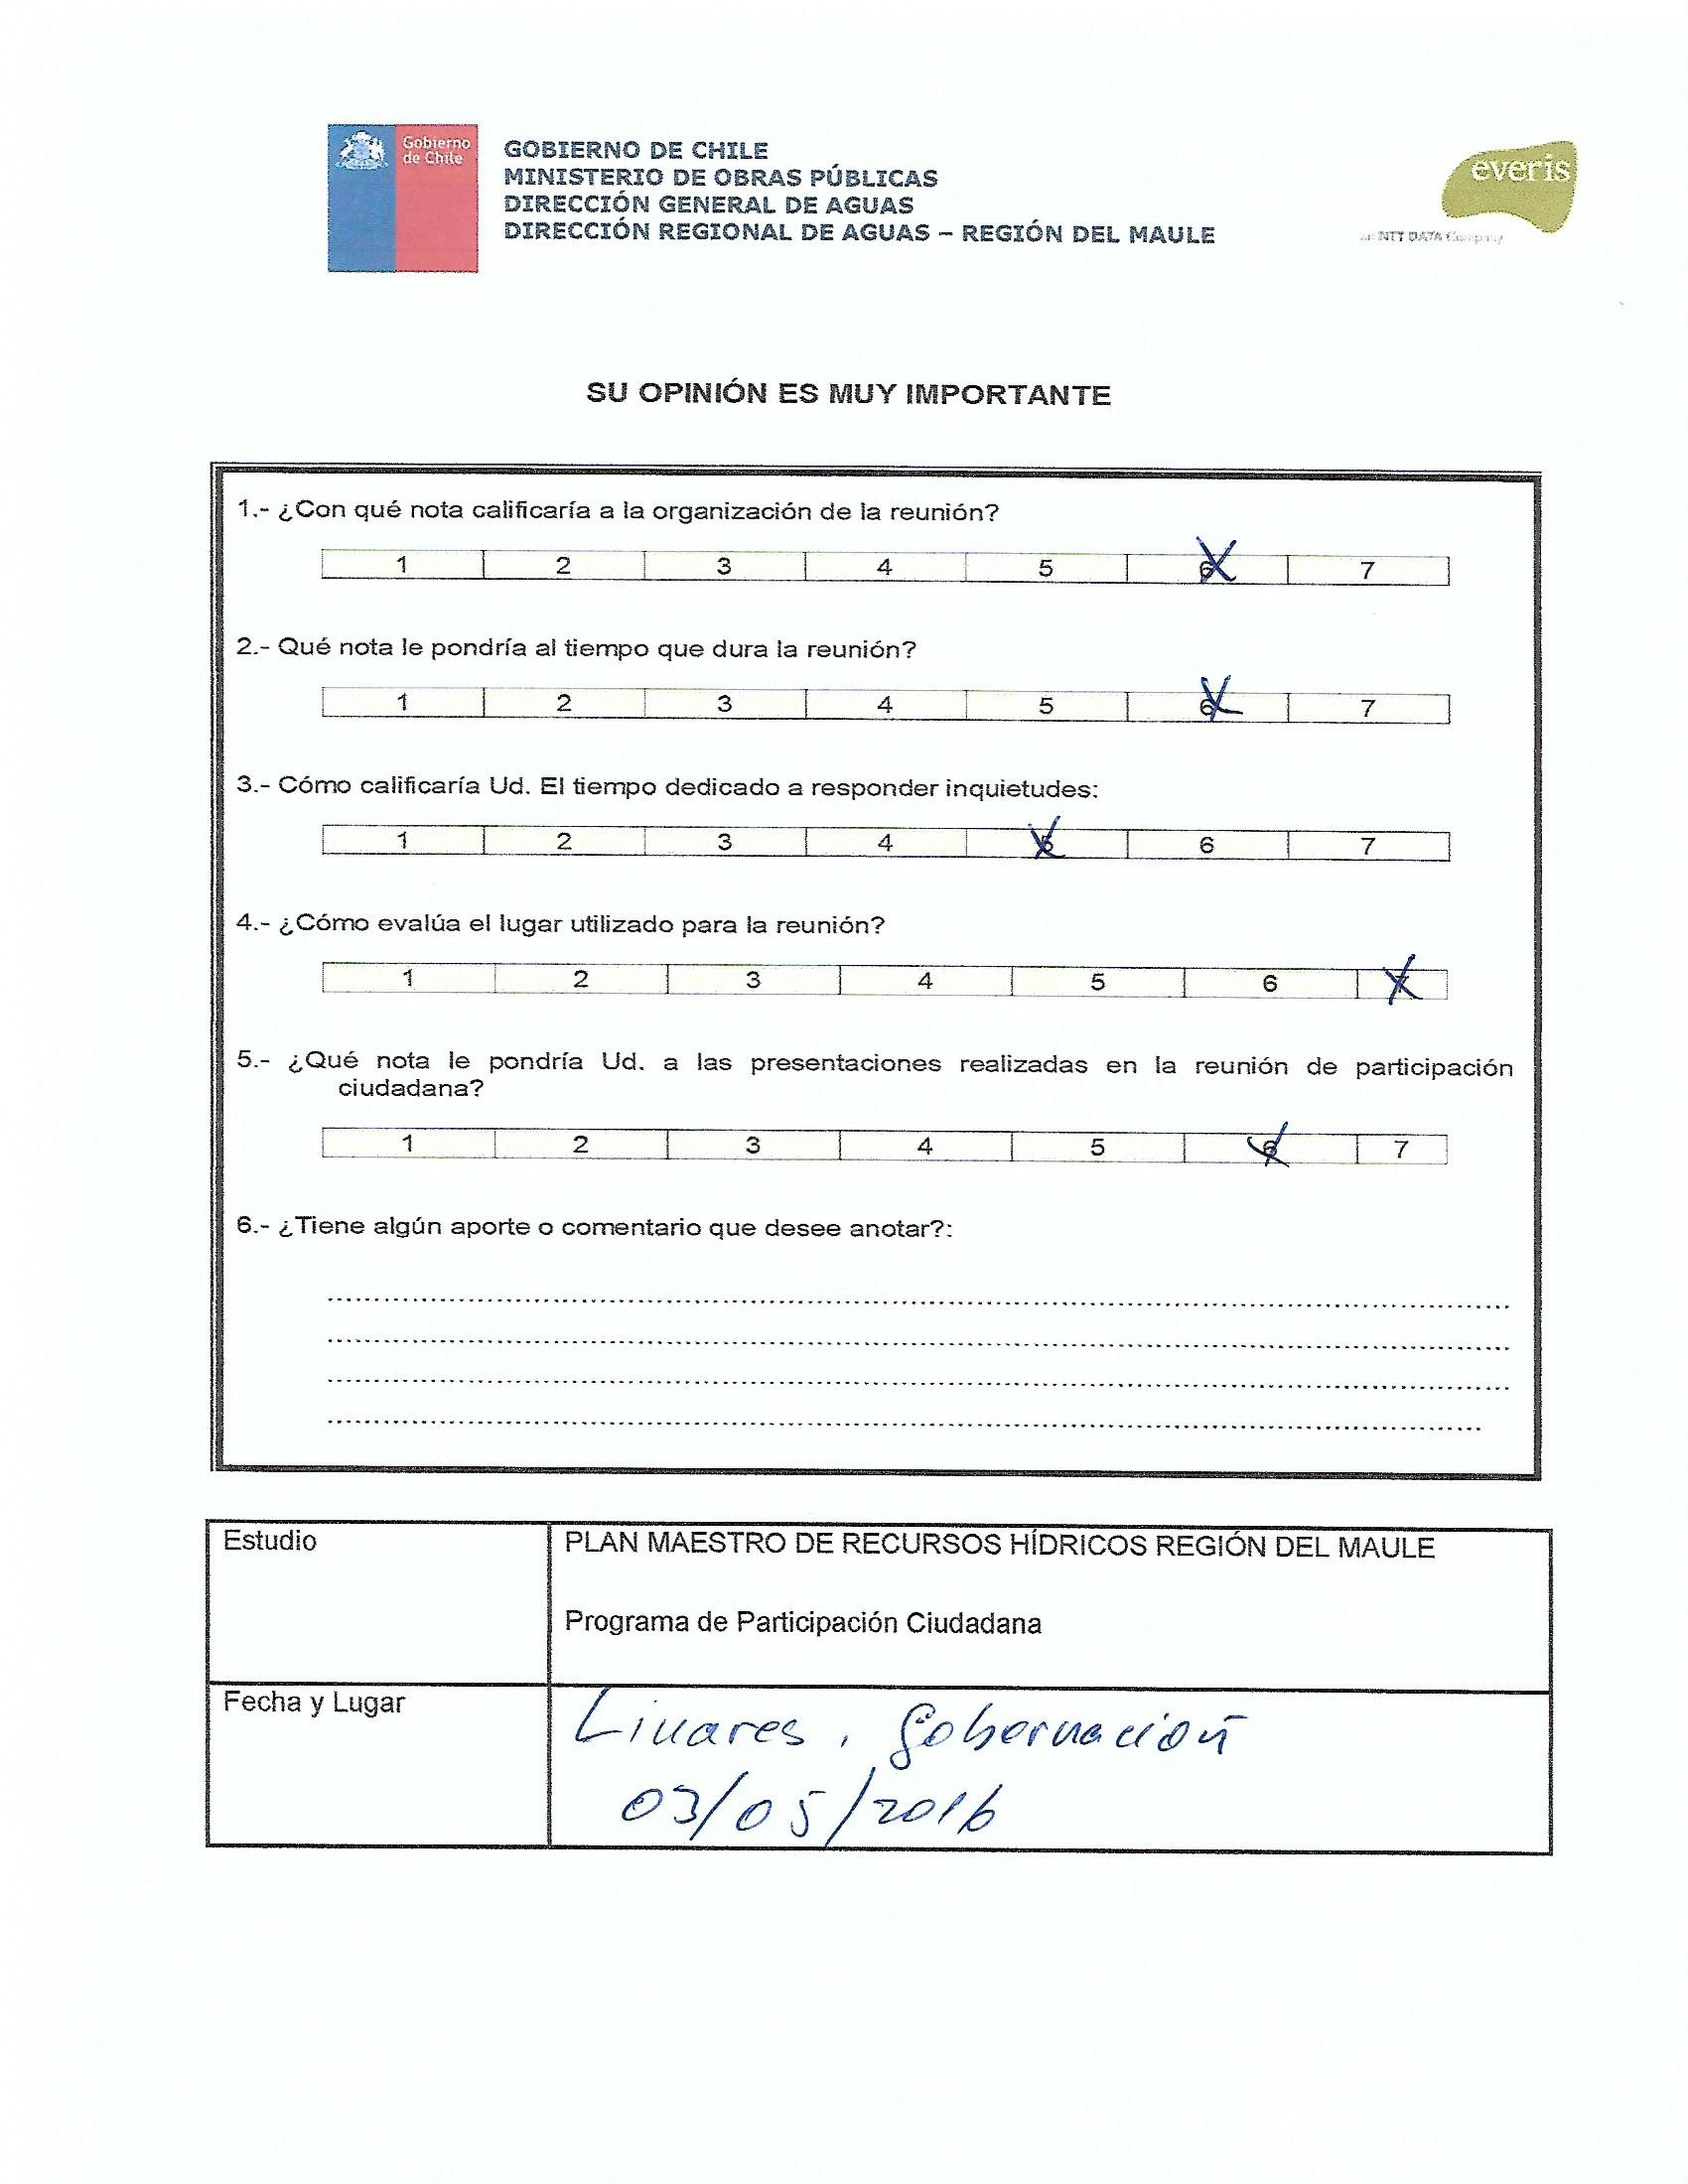 Gobierno
de Chile
GOBIERNO DE CHILE
MINISTERIO DE OBRAS PÚBLICAS
DIRECCIÓN GENERAL DE AGUAS
DIRECCIÓN REGIONAL DE AGUAS – REGIÓN DEL MAULE
everis
an NTT DATA Company
SU OPINIÓN ES MUY IMPORTANTE
1.- ¿Con qué nota calificaría a la organización de la reunión?
1 2 3 4 5 6 7
2.- Qué nota le pondría al tiempo que dura la reunión?
1 2 3 4 5 6 7
3.- Cómo calificaría Ud. El tiempo dedicado a responder inquietudes:
1 2 3 4 5 6 7
4.- ¿Cómo evalúa el lugar utilizado para la reunión?
1 2 3 4 5 6 7
5.- ¿Qué nota le pondría Ud. a las presentaciones realizadas en la reunión de participación
ciudadana?
1 2 3 4 5 6 7
6.- ¿Tiene algún aporte o comentario que desee anotar?:
Estudio
PLAN MAESTRO DE RECURSOS HÍDRICOS REGIÓN DEL MAULE
Programa de Participación Ciudadana
Fecha y Lugar
Linares, Gobernación
03/05/2016